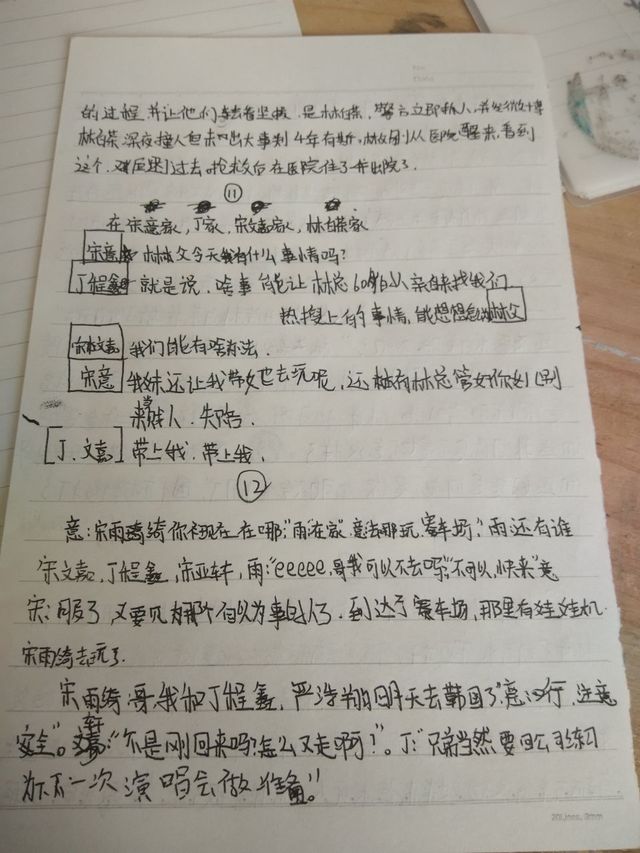 的过程,并让他们去看坚接,是林白荣,警言立即拆人,并发微博
林白荣深夜撞人但未出大事判4年有斯,林父刚从医院醒来,看到
这个,又过去。抢救后在医院住了一并出院了.
⑪
在宋意家,丁家,宋文嘉家,林白荣家
宋意 林父今天找有什么事情吗?
丁程鑫 就是说.啥事能让林总60多的人亲自来找我们
热搜上的事情,能想想 林父
宋文嘉 我们能有啥办法.
宋意 我妹还让我带她去玩呢,还林总管好你女儿别
来 人.失陪.
[丁.文嘉] 带上我.带上我.
⑫
意:宋雨绮你现在在哪:"雨在家".意:去哪玩"赛车场".雨还有谁
宋文嘉,丁程鑫,宋亚轩,雨:"eeeee,哥我可以不去吗""不可以,快来"意
宋:问服了 又要见为那个自以为事的人了.到达了赛车场,那里有娃娃机.
宋雨绮去玩了.
宋雨绮:哥,我和丁程鑫,严浩翔明天去韩国了"意"行,注意
安全"。轩:"不是刚回来吗?怎么又走啊?"。丁:"兄弟当然要回公司练习
为下一次演唱会做准备。"
20Lines, 9mm